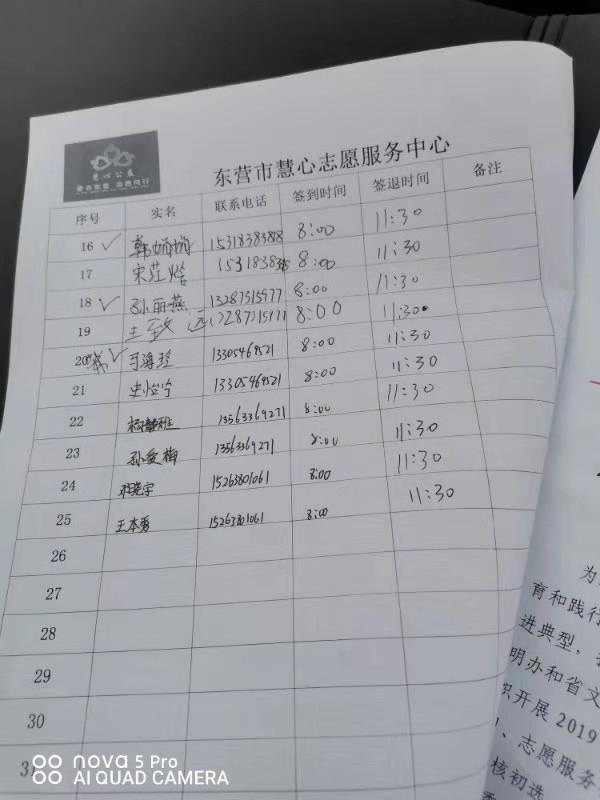 慧心公益
东营市慧心志愿服务中心
序号 实名 联系电话 签到时间 签退时间 备注
16 ✓ 韩娟娟 15318383818 8:00 11:30
17 宋 8:00 11:30
18 ✓ 孙丽燕 13287315777 8:00 11:30
19 王 8:00 11:30
20 ✓ 于海玲 13305469521 8:00 11:30
21 史怡宁 13305469521 8:00 11:30
22 13563369271 8:00 11:30
23 孙爱梅 13563369271 8:00 11:30
24 晓宇 15263801061 8:00 11:30
25 王本秀 15263801061 8:00 11:30
26
27
28
29
30
为
育和践行
进典型,
明办和省文
织开展 2019
、志愿服务
核初选
nova 5 Pro
AI QUAD CAMERA